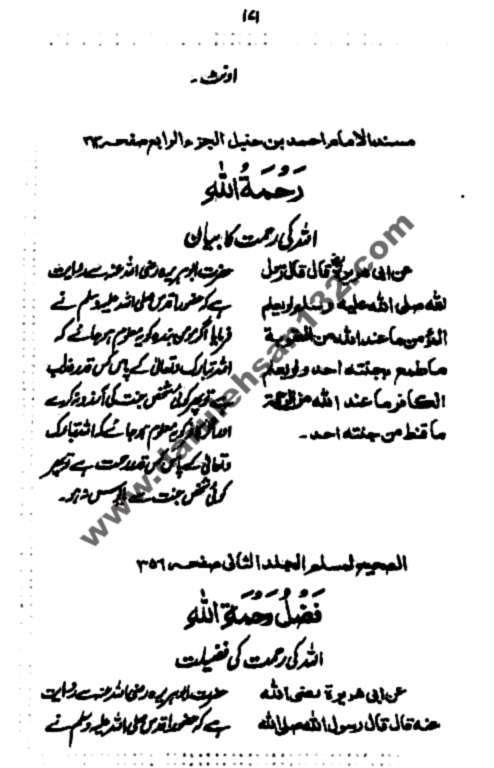 ۱۷۱
اونٹ۔
مسند الامام احمد بن حنبل الجزء الرابع صفحہ
رَحْمَةُ اللهِ
اللہ کی رحمت کا بیان
عن ابی هریرة قال قال رسول
الله صلی الله علیه وسلم لو یعلم
المؤمن ما عند الله من العقوبة
ما طمع بجنته احد ولو یعلم
الکافر ما عند الله من الرحمة
ما قنط من جنته احد۔
حضرت ابوہریرہ رضی اللہ عنہ سے روایت
ہے کہ حضور اقدس صلی اللہ علیہ وسلم نے
فرمایا اگر مومن بندہ کو یہ معلوم ہو جائے کہ
اللہ تبارک و تعالیٰ کے پاس کس قدر عذاب
ہے تو پھر کوئی شخص جنت کی آرزو نہ کرے
اور اگر کافر کو یہ معلوم ہو جائے کہ اللہ تبارک
وتعالیٰ کے پاس کس قدر رحمت ہے تو پھر
کوئی شخص جنت سے مایوس نہ ہو۔
www.darulehsan132.com
الصحیح لمسلم المجلد الثانی صفحہ ۳۵۶
فَضْلُ رَحْمَةِ اللهِ
اللہ کی رحمت کی فضیلت
عن ابی هریرة رضی الله
عنه قال قال رسول الله صلی الله
حضرت ابوہریرہ رضی اللہ عنہ سے روایت
ہے کہ حضور اقدس صلی اللہ علیہ وسلم نے